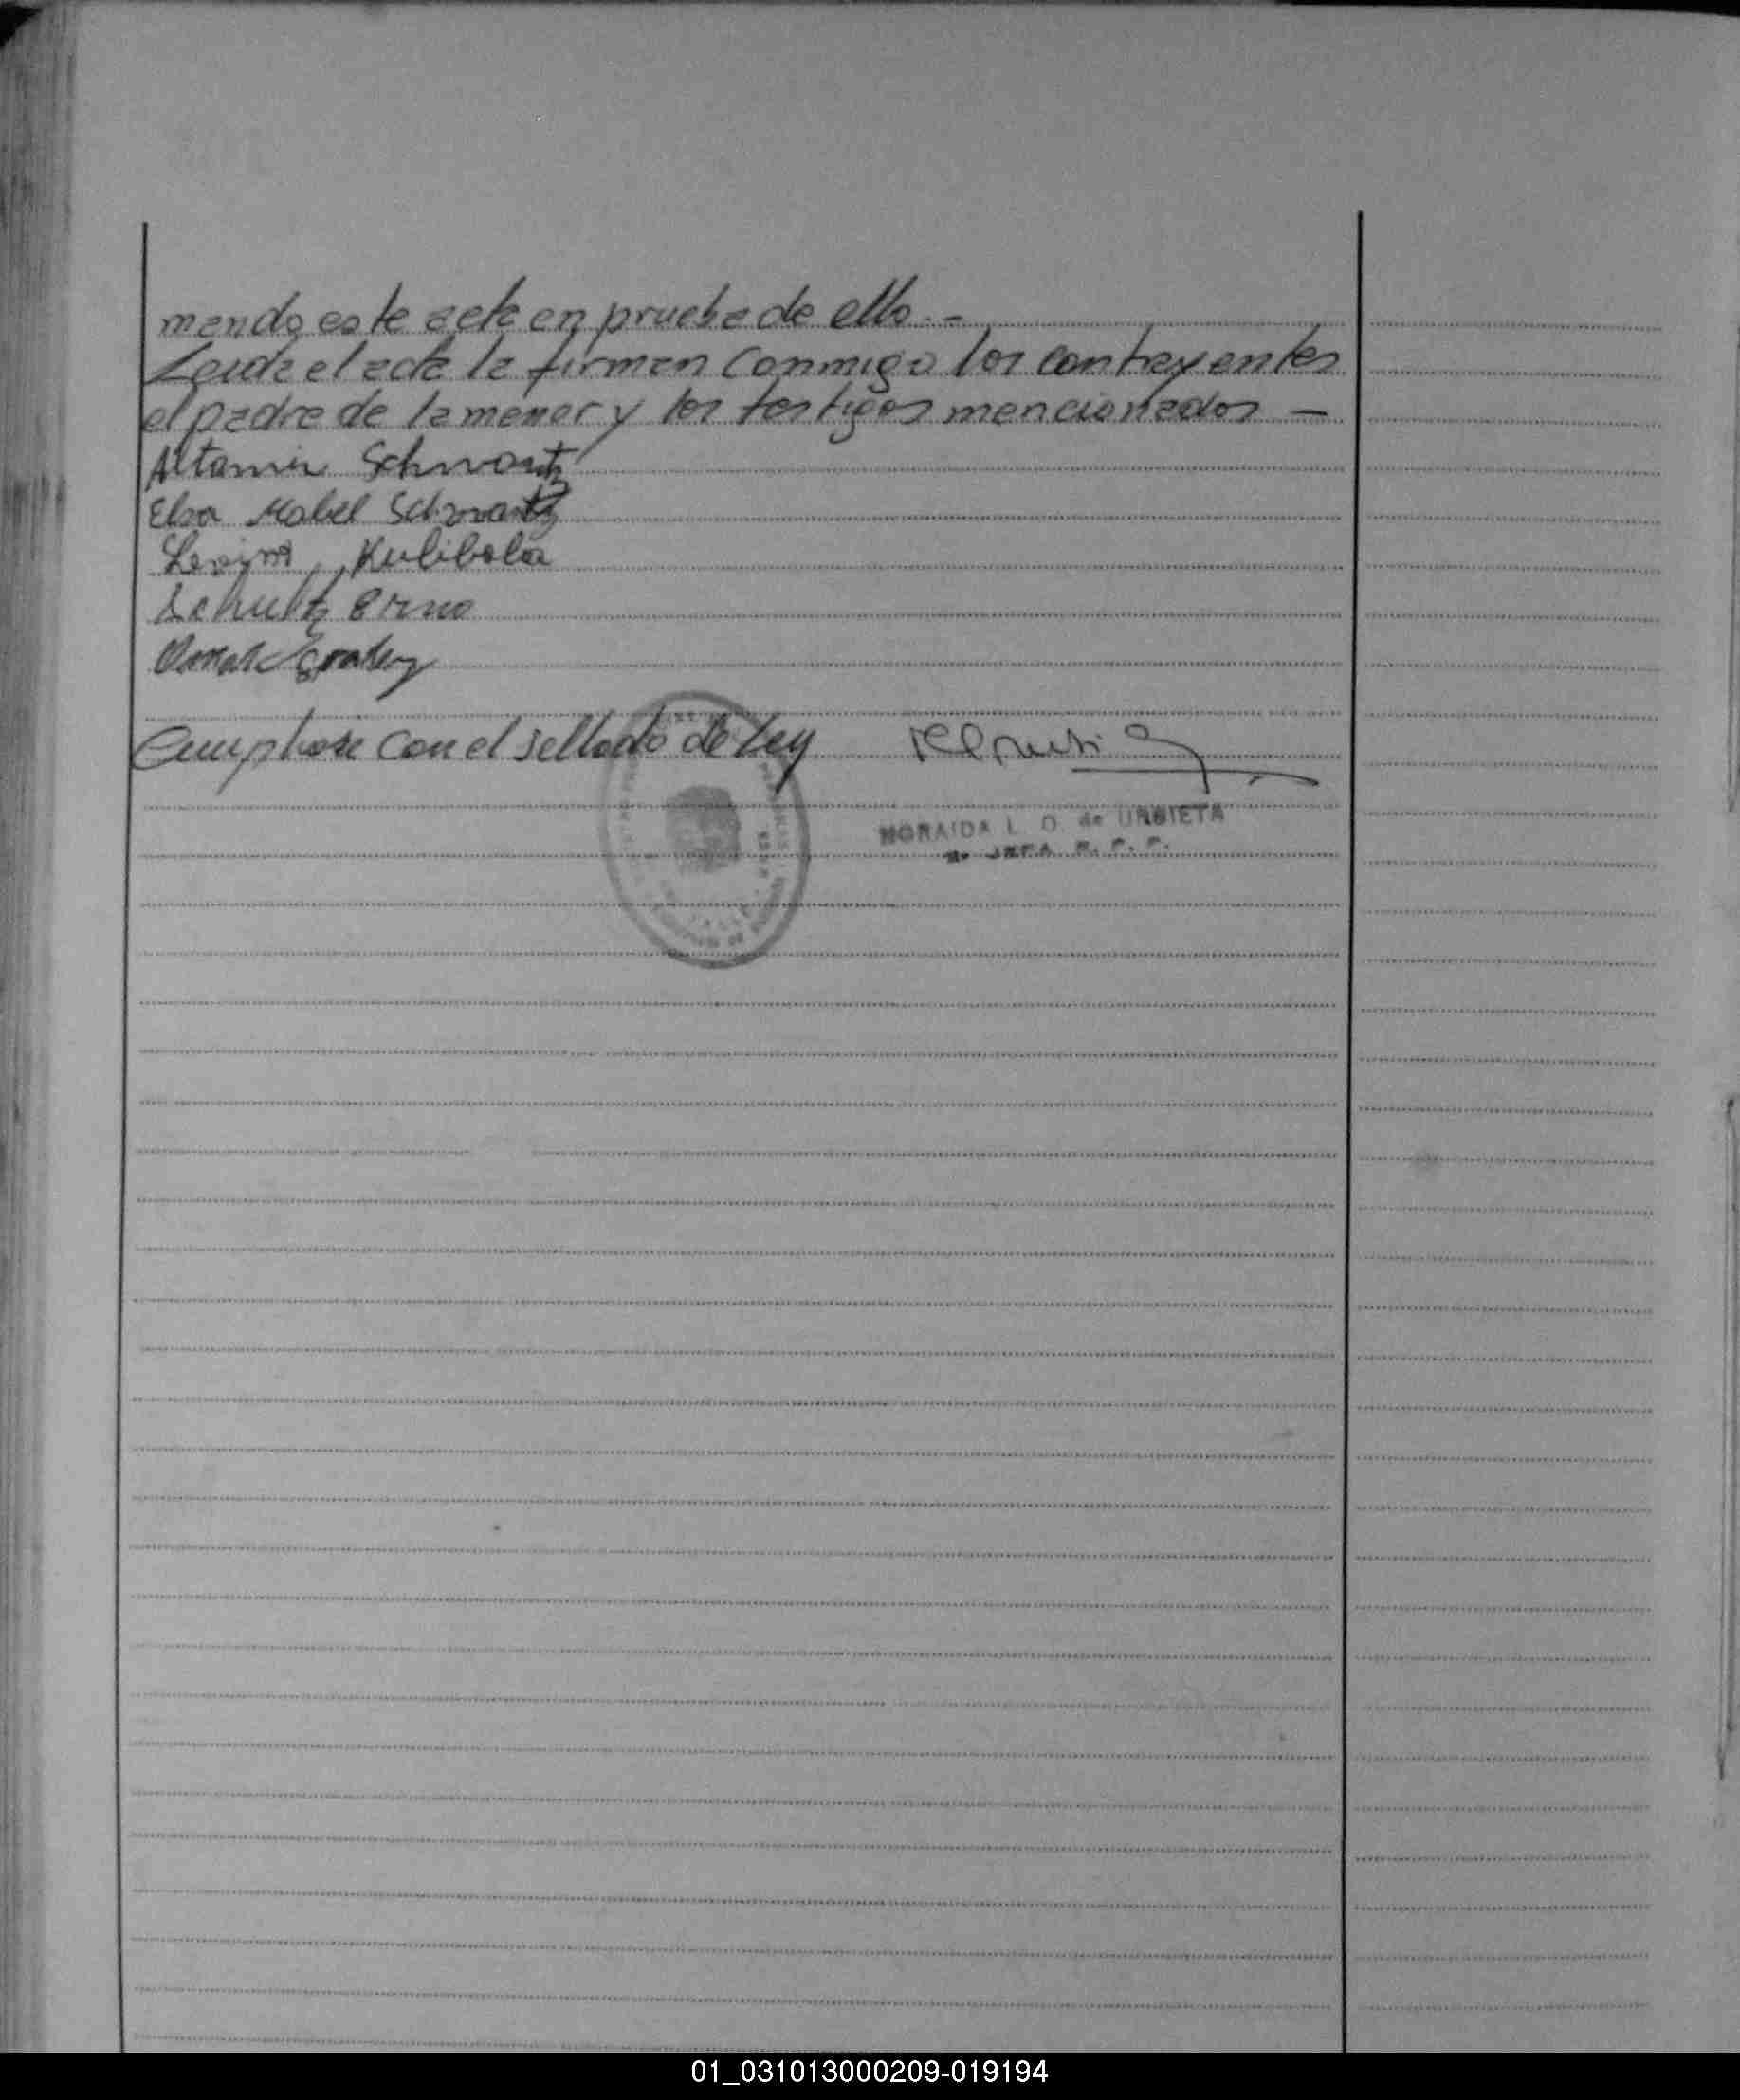 mando este acta en prueba de ello.-
Leida el acta la firman conmigo los contrayentes
el padre de la menor y los testigos mencionados -
Altamir Schwartz
Elsa Mabel Schwartz
Kulibaba
Schultz Erno
Cumplase con el sellado de Ley
NORAIDA L. O. de URBIETA
JEFA R. P. P.
01_031013000209-019194